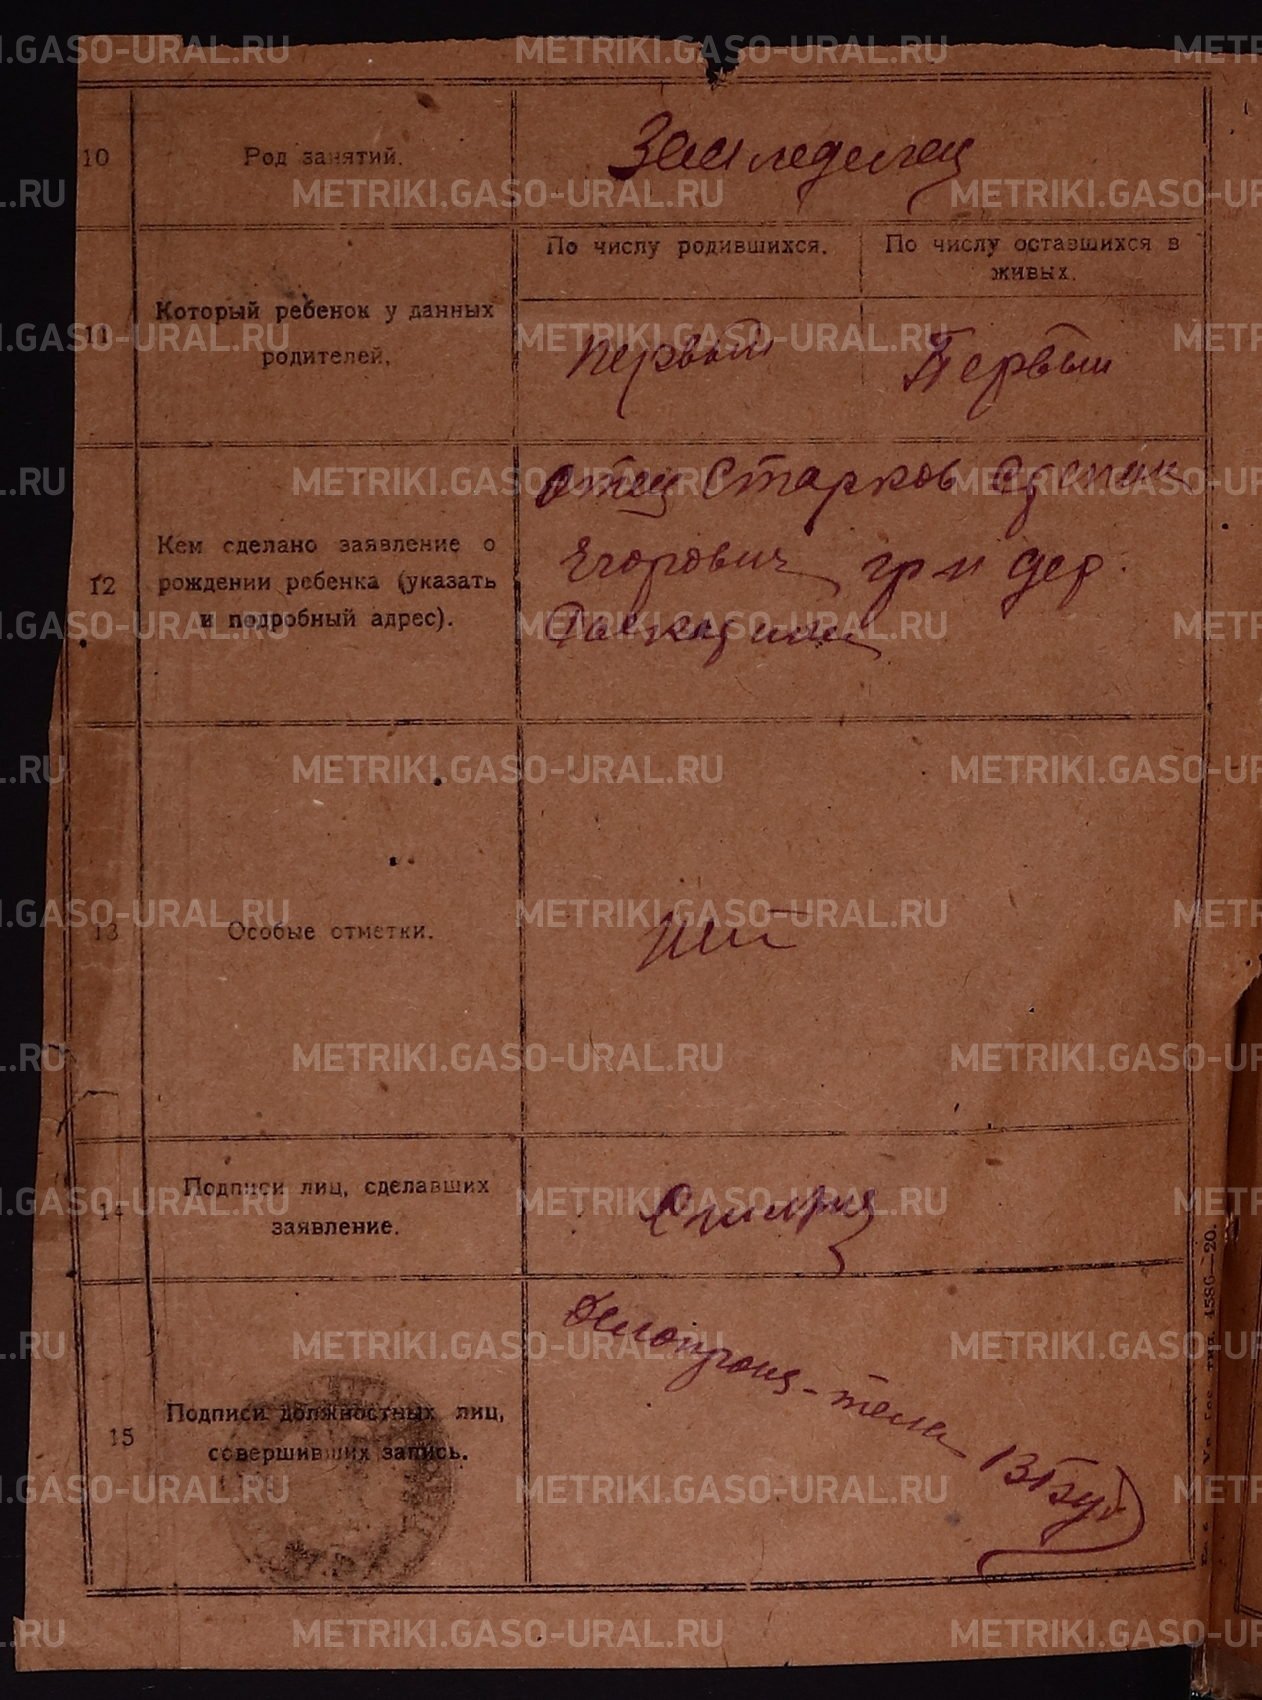 10
Род занятий.
Земледелец
11
Который ребенок у данных
родителей.
По числу родившихся.
По числу оставшихся в
живых.
Первый
Первый
12
Кем сделано заявление о
рождении ребенка (указать
и подробный адрес).
Отец Старков
Егорович гр-н дер.
13
Особые отметки.
Нет
14
Подписи лиц, сделавших
заявление.
15
Подписи должностных лиц,
совершивших запись.
METRIKI.GASO-URAL.RU